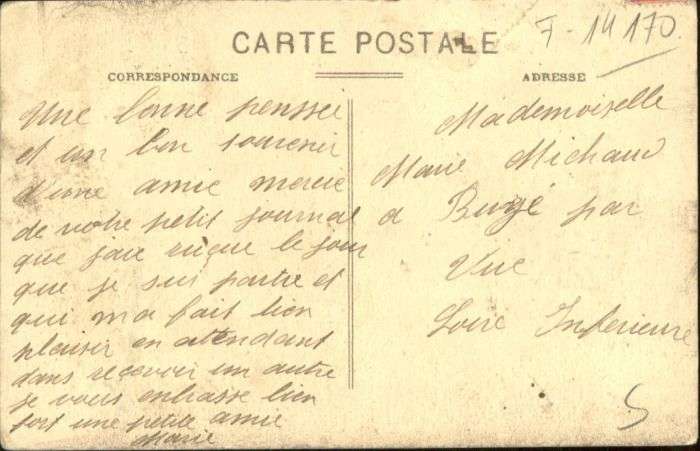 CARTE POSTALE
F-14170
CORRESPONDANCE
ADRESSE
Une bonne penssee
et un bon souvenir
d'une amie mercie
de votre petit journal
que jaie riçue le jour
que je suis partie et
qui ma fait bien
plaisir en attendant
dans reçevoir un autre
je vous enbrasse bien
fort une petite amie
Marie
Mademoiselle
Marie Michaud
a Bugé par
Vue
Loire Inferieure